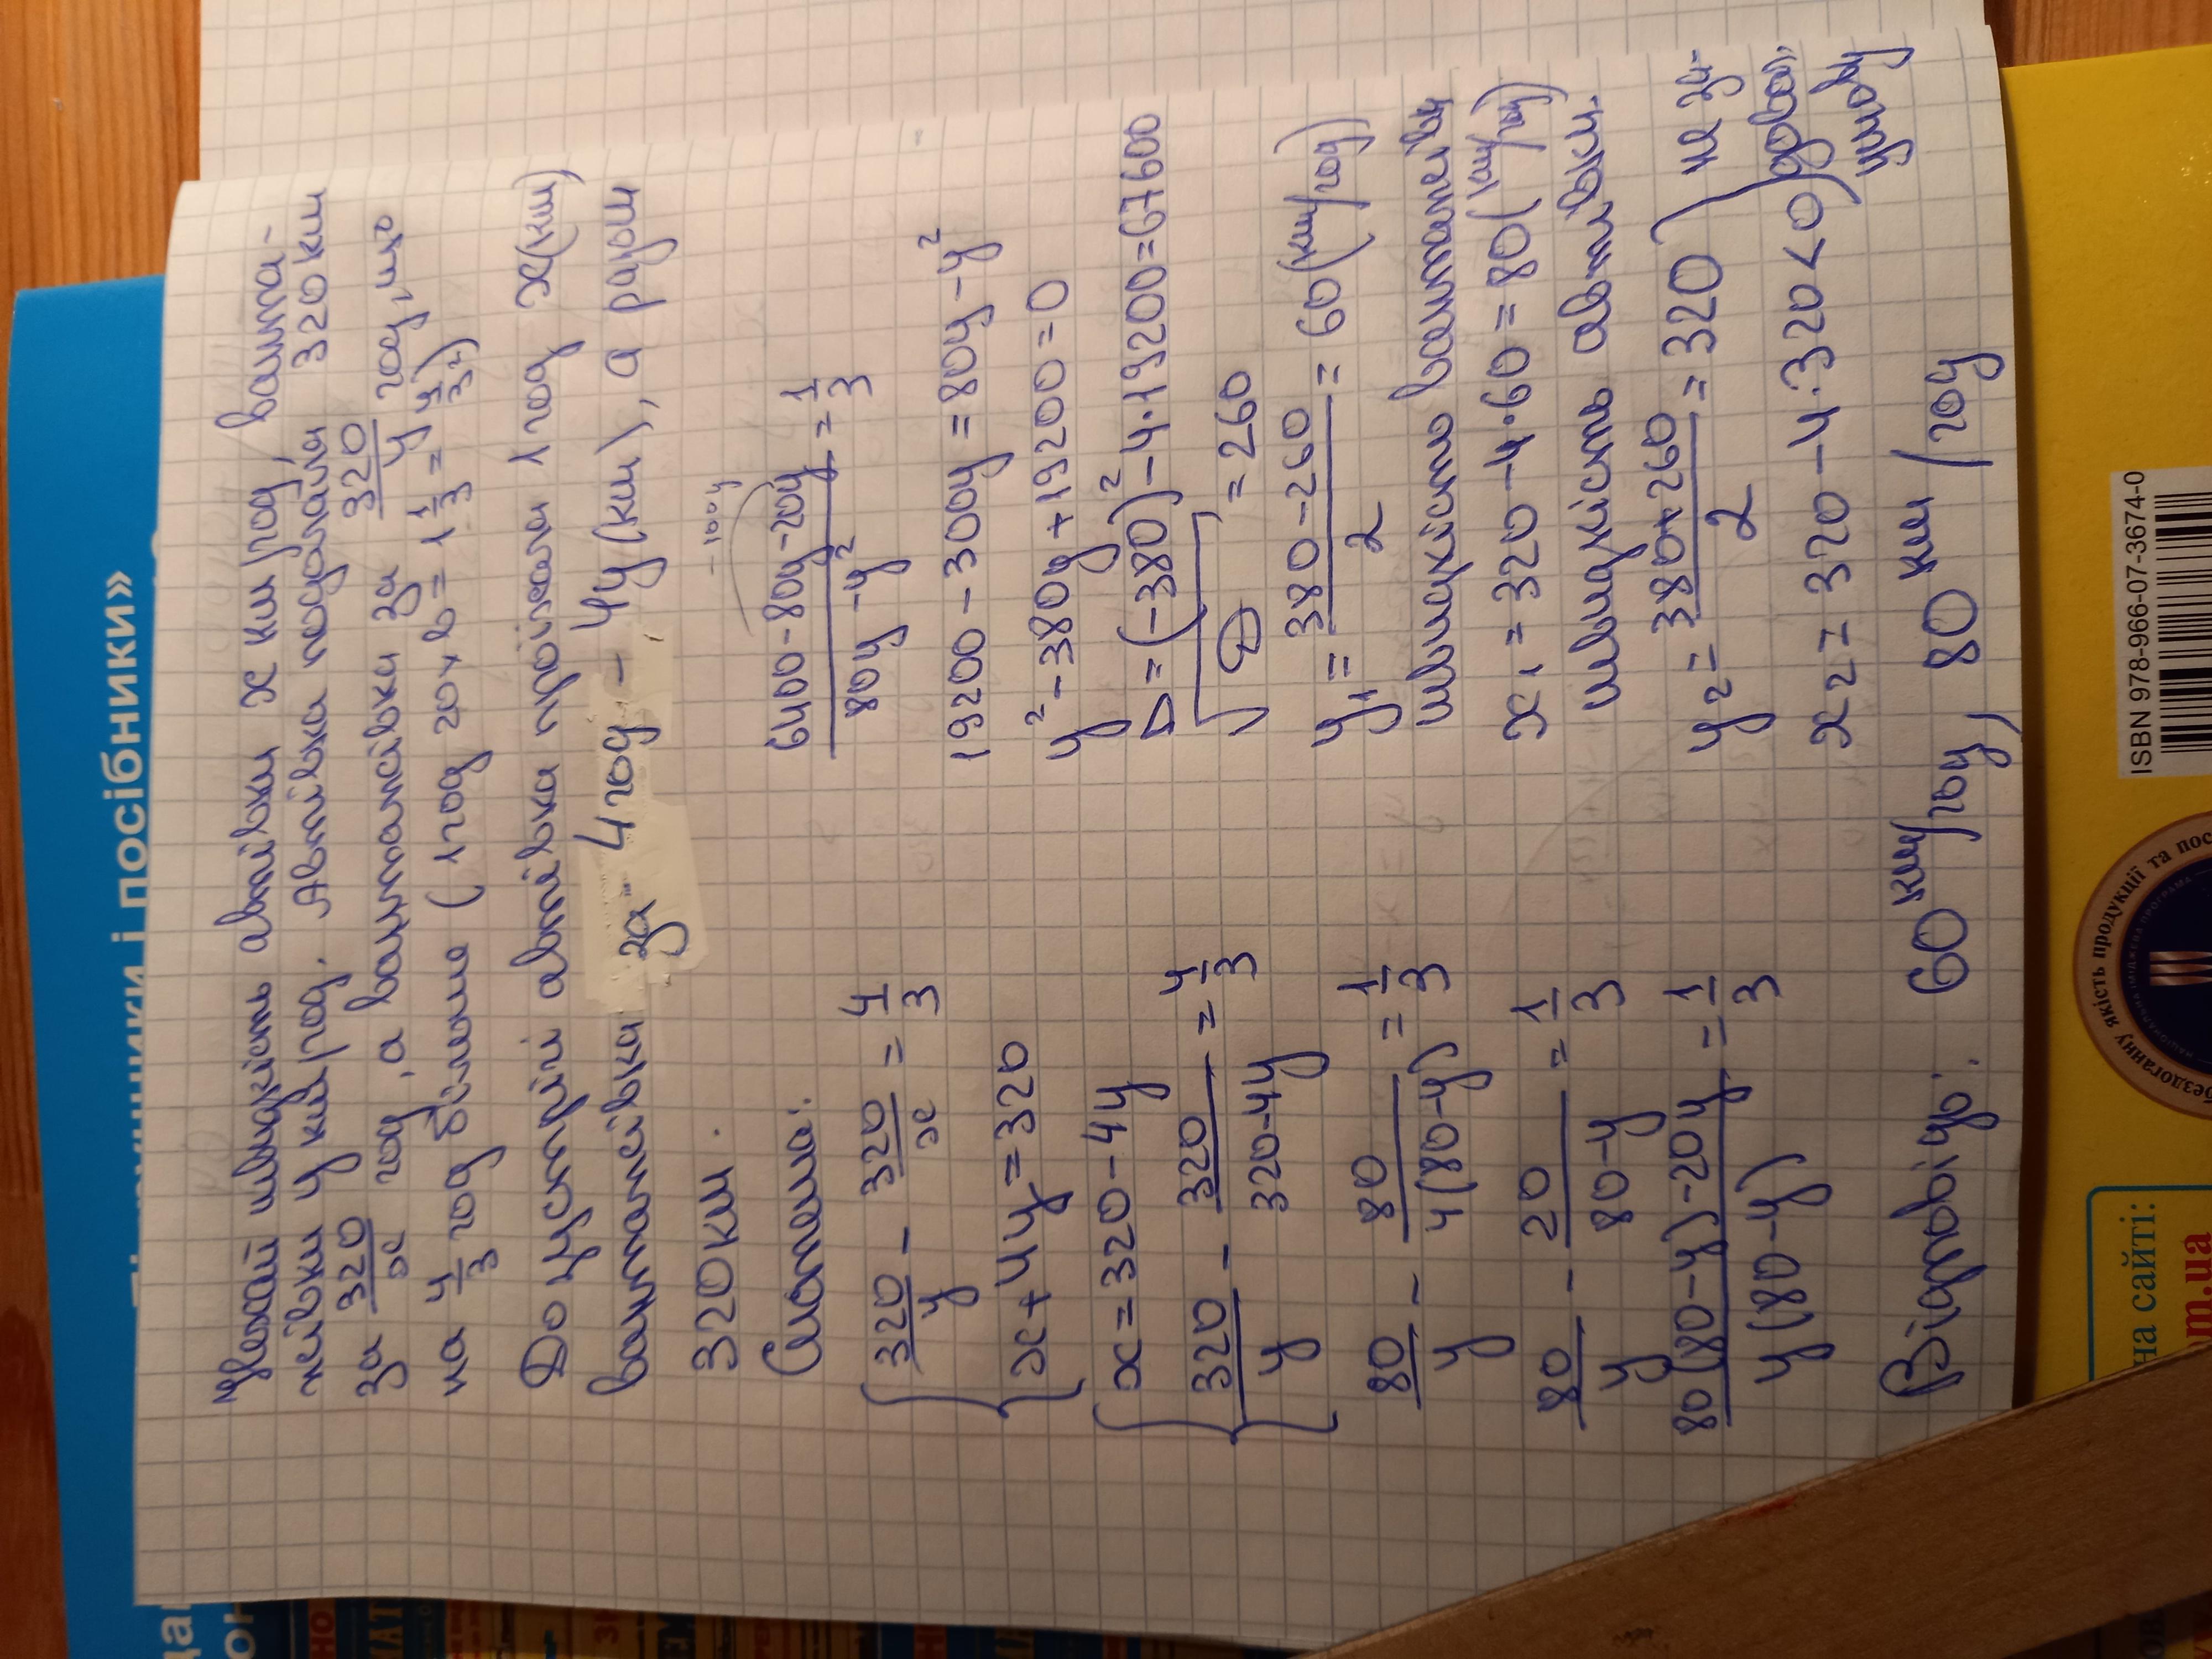 Нехай швидкість автівки x км/год, ванта-
жівки y км/год. Автівка подолала 320 км
за 320/x год, а вантажівка за 320/y год, що
на 4/3 год більше (1 год 20 хв = 1 1/3 = 4/3 г)
До зустрічі автівка проїхала 1 год x(км)
вантажівка за 4 год - 4y(км), а разом
320 км.
Система:
{320/y - 320/x = 4/3
{x+4y=320
{x=320-4y
{320/y - 320/320-4y = 4/3
80/y - 80/4(80-y) = 1/3
80/y - 20/80-y = 1/3
80(80-y)-20y/y(80-y) = 1/3
-100y
6400-80y-20y/80y-y² = 1/3
19200-300y=80y-y²
y²-380y+19200=0
D=(-380)²-4·19200=67600
√D=260
y₁=380-260/2=60(км/год)
швидкість вантажівки
x₁=320-4·60=80(км/год)
швидкість автівки.
y₂=380+260/2=320) не за-
x₂=320-4·320<0) довал.
умову
Відповідь: 60 км/год, 80 км/год
і посібники»
ISBN 978-966-07-3674-0
бездоганну якість продукції та пос
НАЦІОНАЛЬНА ІМІДЖЕВА ПРОГРАМА
на сайті:
m.ua